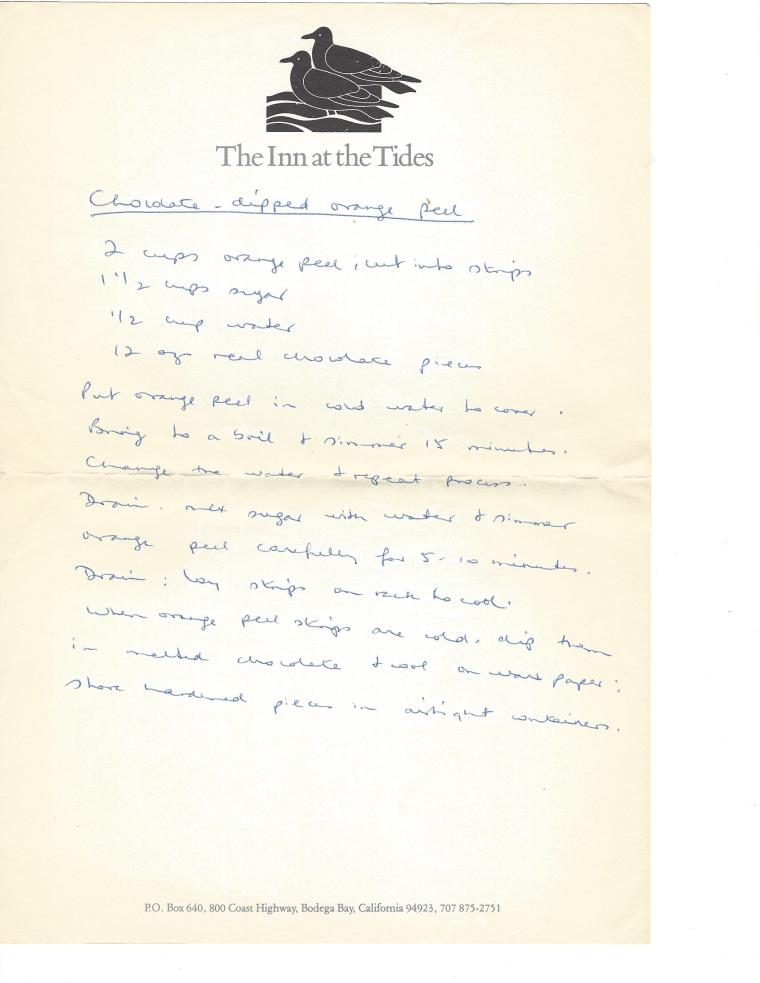 The Inn at the Tides
Chocolate-dipped orange peel
2 cups orange peel; cut into strips
1 1/2 cups sugar
1/2 cup water
12 oz real chocolate pieces
Put orange peel in cold water to cover.
Bring to a boil & simmer 15 minutes.
Change the water & repeat process.
Drain. mix sugar with water & simmer
orange peel carefully for 5-10 minutes.
Drain; lay strips on rack to cool.
When orange peel strips are cold, dip them
in melted chocolate & cool on wax paper;
store hardened pieces in airtight containers.
P.O. Box 640, 800 Coast Highway, Bodega Bay, California 94923, 707 875-2751